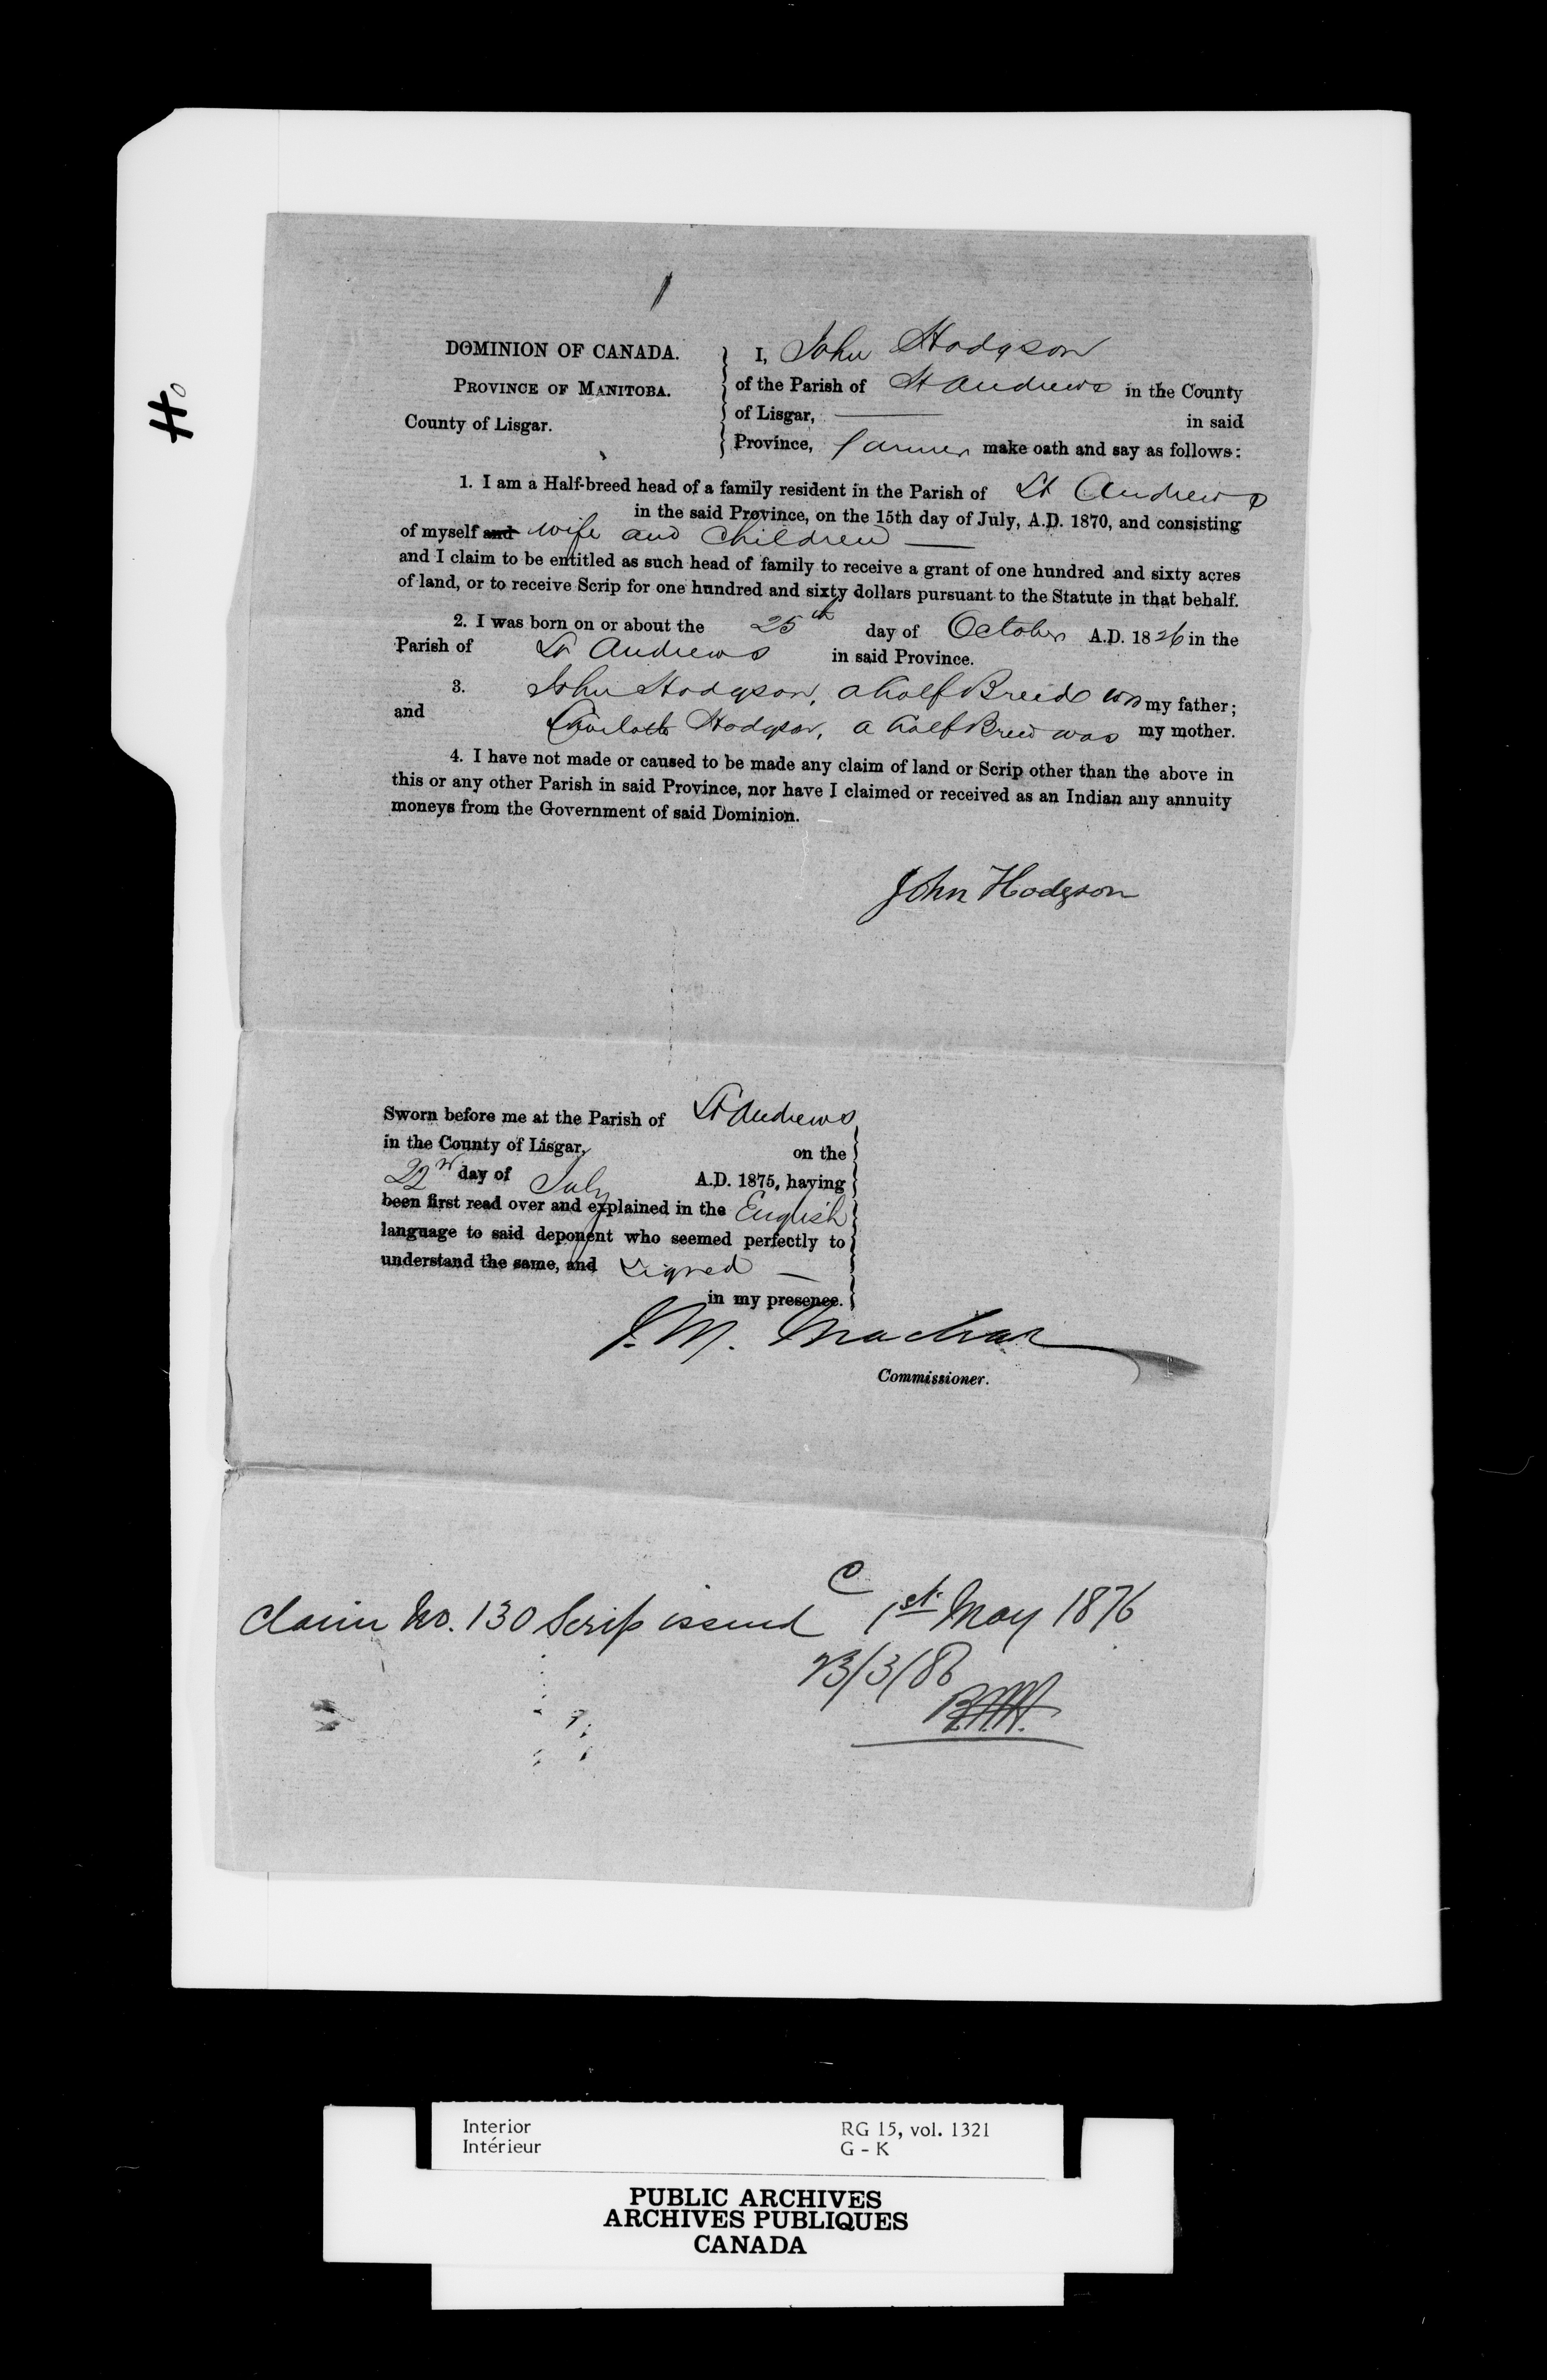 Ho
DOMINION OF CANADA.
PROVINCE OF MANITOBA.
County of Lisgar.
I, John Hodgson
of the Parish of St Andrews in the County
of Lisgar, in said
Province, farmer make oath and say as follows:
1. I am a Half-breed head of a family resident in the Parish of St Andrews
in the said Province, on the 15th day of July, A.D. 1870, and consisting
of myself and wife and Children
and I claim to be entitled as such head of family to receive a grant of one hundred and sixty acres
of land, or to receive Scrip for one hundred and sixty dollars pursuant to the Statute in that behalf.
2. I was born on or about the 25th day of October A.D. 1826 in the
Parish of St Andrews in said Province.
3. John Hodgson, a half Breed was my father;
and Charlotte Hodgson, a half Breed was my mother.
4. I have not made or caused to be made any claim of land or Scrip other than the above in
this or any other Parish in said Province, nor have I claimed or received as an Indian any annuity
moneys from the Government of said Dominion.
John Hodgson
Sworn before me at the Parish of St Andrews
in the County of Lisgar, on the
22nd day of July A.D. 1875, having
been first read over and explained in the English
language to said deponent who seemed perfectly to
understand the same, and signed
in my presence.
J. M. Machar
Commissioner.
Claim No. 130 Scrip issued C 1st May 1876
23/3/86
Interior RG 15, vol. 1321
Intérieur G - K
PUBLIC ARCHIVES
ARCHIVES PUBLIQUES
CANADA